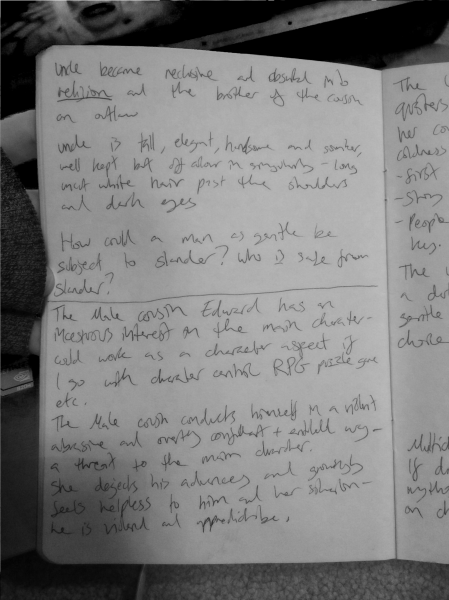 uncle became reclusive and obsessed into
religion and the brother of the cousin
an outlaw
uncle is tall, elegant, handsome and
well kept but off colour in singularity - long
white hair past the shoulders
and dark eyes
How could a man as gentle be
subject to slander? who is safe from
slander?
The Male cousin Edward has an
incestuous interest in the main character -
could work as a character aspect if
I go with character central RPG puzzle game
etc.
The Male cousin conducts himself in a violent
abrasive and overtly confident + entitled way -
a threat to the main character.
She rejects his advances and
feels helpless to him and her situation -
he is violent and unpredictable.
The
her
coldness
- first
- Story
- People
key.
The
a
gentle
choice
If
on